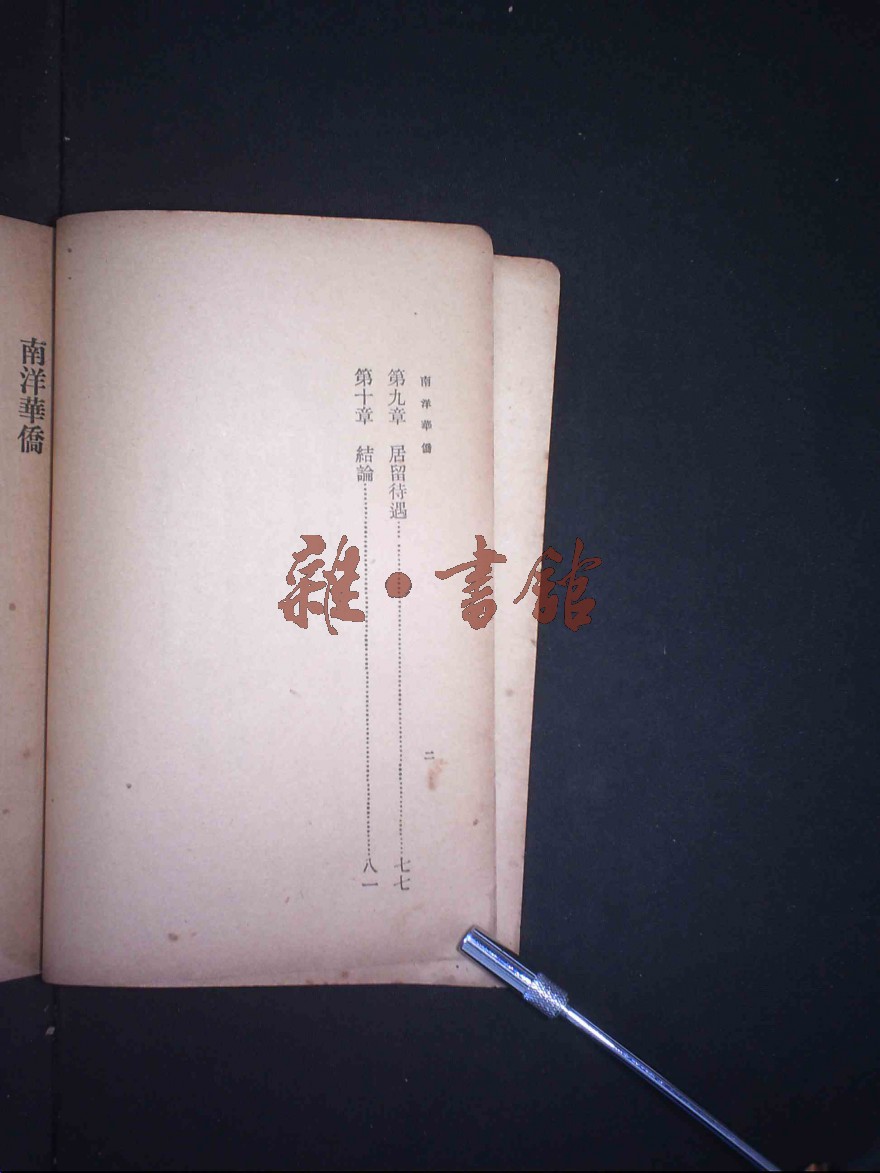 南洋華僑
二
第九章　居留待遇……七七
第十章　結論……八一
南洋華僑
雜・書館